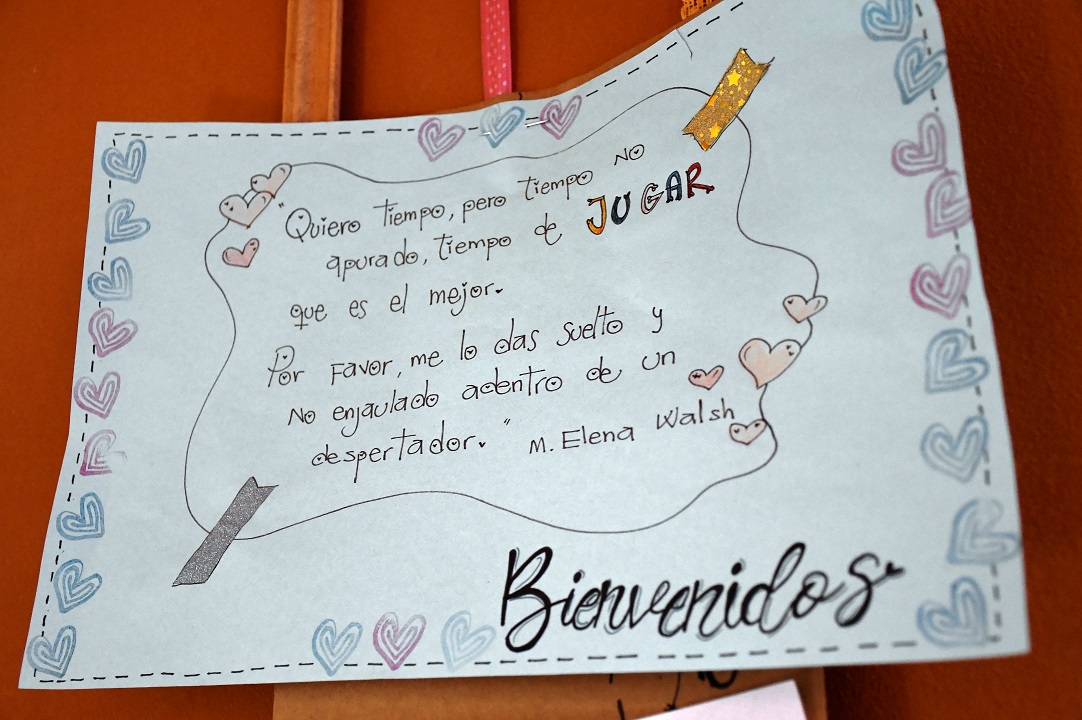 "Quiero tiempo, pero tiempo no
apurado, tiempo de JUGAR
que es el mejor.
Por Favor, me lo das suelto y
No enjaulado adentro de un
despertador." M. Elena Walsh
Bienvenidos